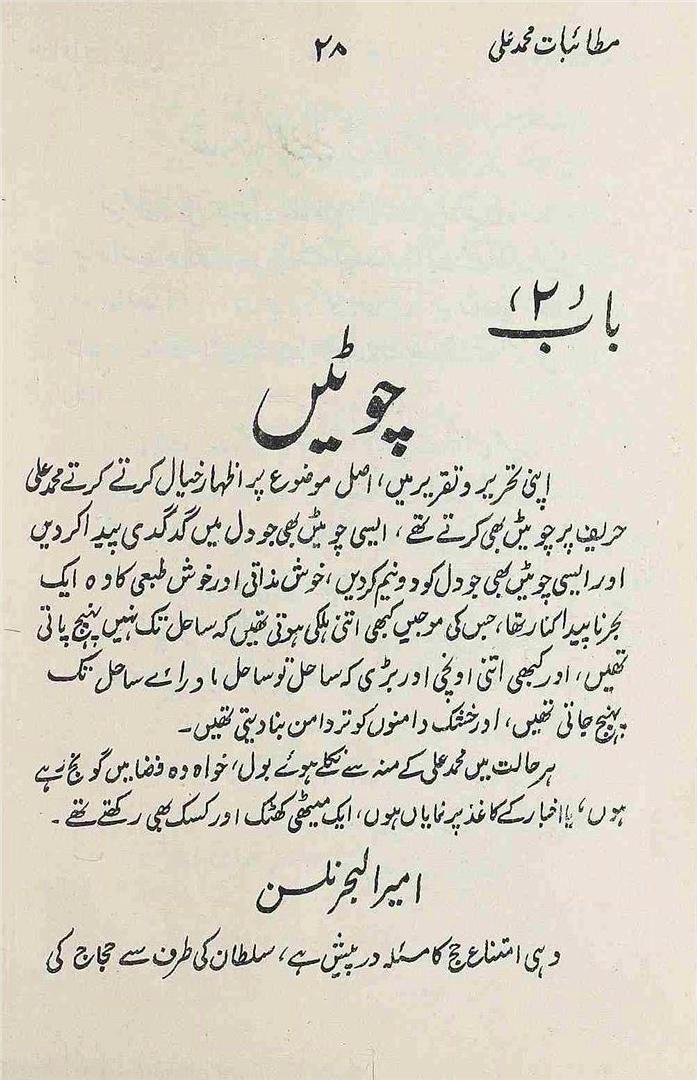 مطائبات محمد علی
۲۸
باب (۲)
چوٹیں
اپنی تحریر و تقریر میں، اصل موضوع پر اظہار خیال کرتے کرتے محمد علی
حریف پر چوٹیں بھی کرتے تھے، ایسی چوٹیں بھی جو دل میں گدگدی پیدا کردیں
اور ایسی چوٹیں بھی جو دل کو دو نیم کردیں، خوش مذاقی اور خوش طبعی کا وہ ایک
بحر ناپیدا کنار تھا، جس کی موجیں کبھی اتنی ہلکی ہوتی تھیں کہ ساحل تک نہیں پہنچ پاتی
تھیں، اور کبھی اتنی اونچی اور بڑی کہ ساحل تو ساحل ماورائے ساحل تک
پہنچ جاتی تھیں، اور خشک دامنوں کو تر دامن بنا دیتی تھیں۔
ہر حالت میں محمد علی کے منہ سے نکلے ہوئے بول، خواہ وہ فضا میں گونج رہے
ہوں، یا اخبار کے کاغذ پر نمایاں ہوں، ایک میٹھی کھٹک اور کسک بھی رکھتے تھے۔
امیر البحر نلسن
وہی امتناع حج کا مسئلہ درپیش ہے، سلطان کی طرف سے حجاج کی